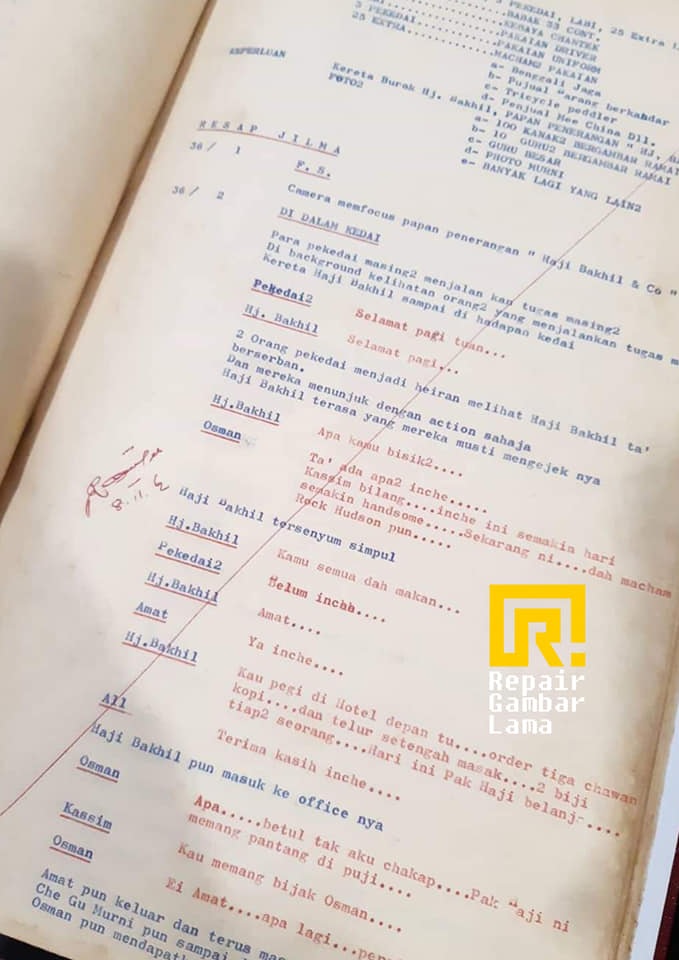 3 PEKEDAI, LABI, 25 Extra
BABAK 33 CONT.
KEBAYA CHANTEK
3 PEKEDAI...............PAKAIAN DRIVER
25 EXTRA................PAKAIAN UNIFORM
MACHAM2 PAKAIAN
a- Benggali Jaga
b- Pujual arang berkandar
c- Tricycle peddler
d- Penjual Mee China Dll.
KEPERLUAN
Kereta Burok Hj. Bakhil, PAPAN PENERANGAN " HJ.
FOTO2
a- 100 KANAK2 BERGAMBAR RAMAI
b- 10 GURU2 BERGAMBAR RAMAI
c- GURU BESAR
d- PHOTO MURNI
e- BANYAK LAGI YANG LAIN2
RESAP JILMA
36/ 1
F. S.
Camera memfocus papan penerangan " Haji Bakhil & Co "
36 / 2
DI DALAM KEDAI
Para pekedai masing2 menjalan kan tugas masing2
Di background kelihatan orang2 yang menjalankan tugas
Kereta Haji Bakhil sampai di hadapan kedai
Pekedai2 Selamat pagi tuan...
Hj. Bakhil Selamat pagi...
2 Orang pekedai menjadi heiran melihat Haji Bakhil ta'
berserban.
Dan mereka menunjuk dengan action sahaja
Haji Bakhil terasa yang mereka musti mengejek nya
Hj.Bakhil Apa kamu bisik2....
Osman Ta' ada apa2 inche.....
Kassim bilang....inche ini semakin hari
semakin handsome.....Sekarang ni....dah macham
Rock Hudson pun.....
Haji Bakhil tersenyum simpul
Hj.Bakhil Kamu semua dah makan...
Pekedai2 Belum inchh....
Hj.Bakhil Amat....
Amat Ya inche....
Hj.Bakhil Kau pegi di Hotel depan tu....order tiga chawan
kopi....dan telur setengah masak....2 biji
tiap2 seorang....Hari ini Pak Haji belanj-....
All Terima kasih inche....
Haji Bakhil pun masuk ke office nya
Osman Apa.....betul tak aku chakap....Pak Haji ni
memang pantang di puji....
Kassim Kau memang bijak Osman....
Osman Ei Amat....apa lagi...
Amat pun keluar dan terus
Che Gu Murni pun sampai
Osman pun
Repair
Gambar
Lama